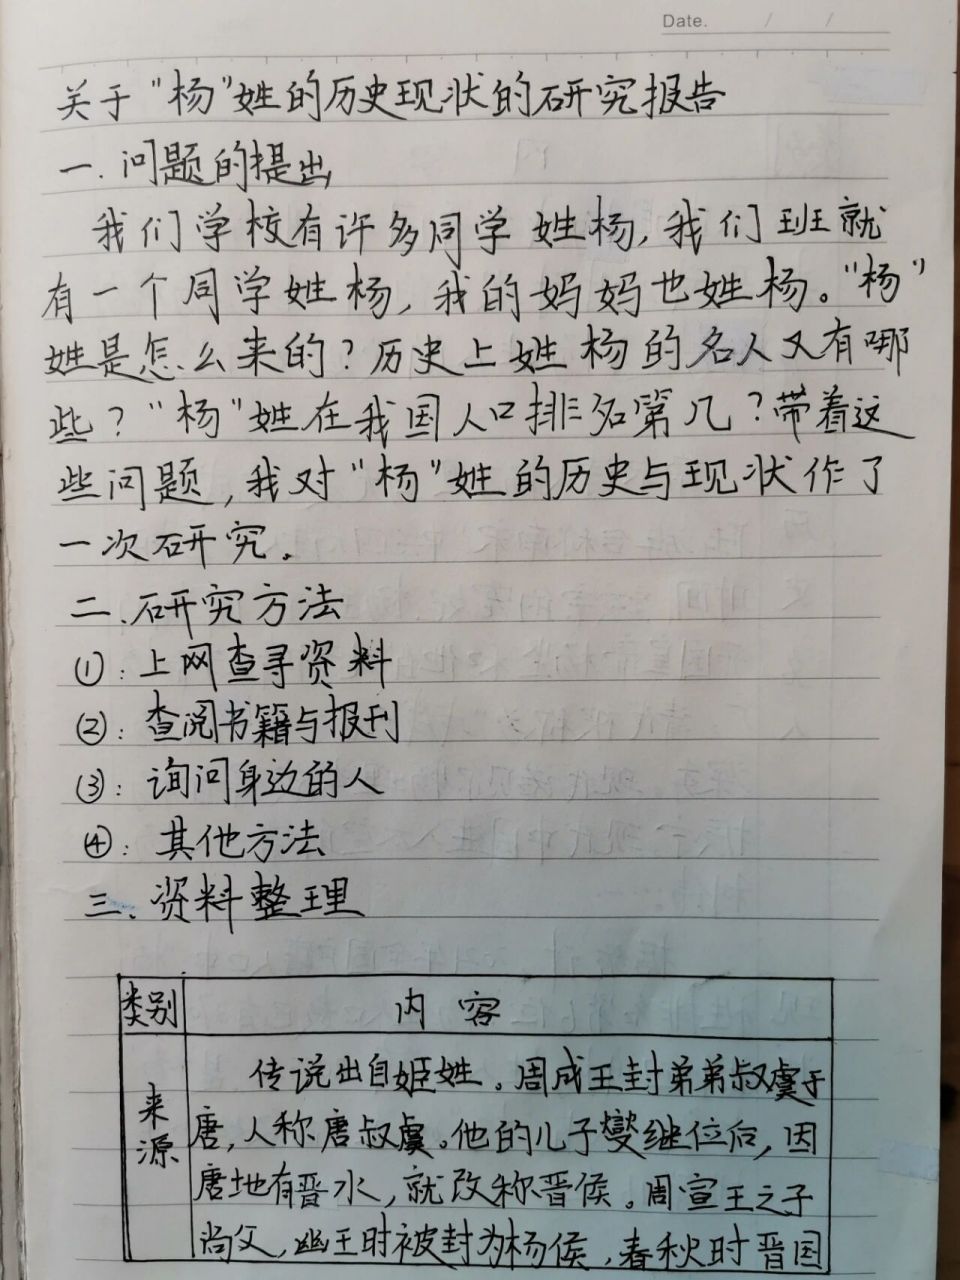 Date. / /
关于“杨”姓的历史现状的研究报告
一.问题的提出
我们学校有许多同学姓杨,我们班就
有一个同学姓杨,我的妈妈也姓杨。“杨”
姓是怎么来的?历史上姓杨的名人又有哪
些?“杨”姓在我国人口排名第几?带着这
些问题,我对“杨”姓的历史与现状作了
一次研究。
二.研究方法
①:上网查寻资料
②:查阅书籍与报刊
③:询问身边的人
④:其他方法
三、资料整理
类别 内容
来源
传说出自姬姓。周成王封弟弟叔虞于
唐,人称唐叔虞。他的儿子燮继位后,因
唐地有晋水,就改称晋侯。周宣王之子
尚父,幽王时被封为杨侯,春秋时晋国